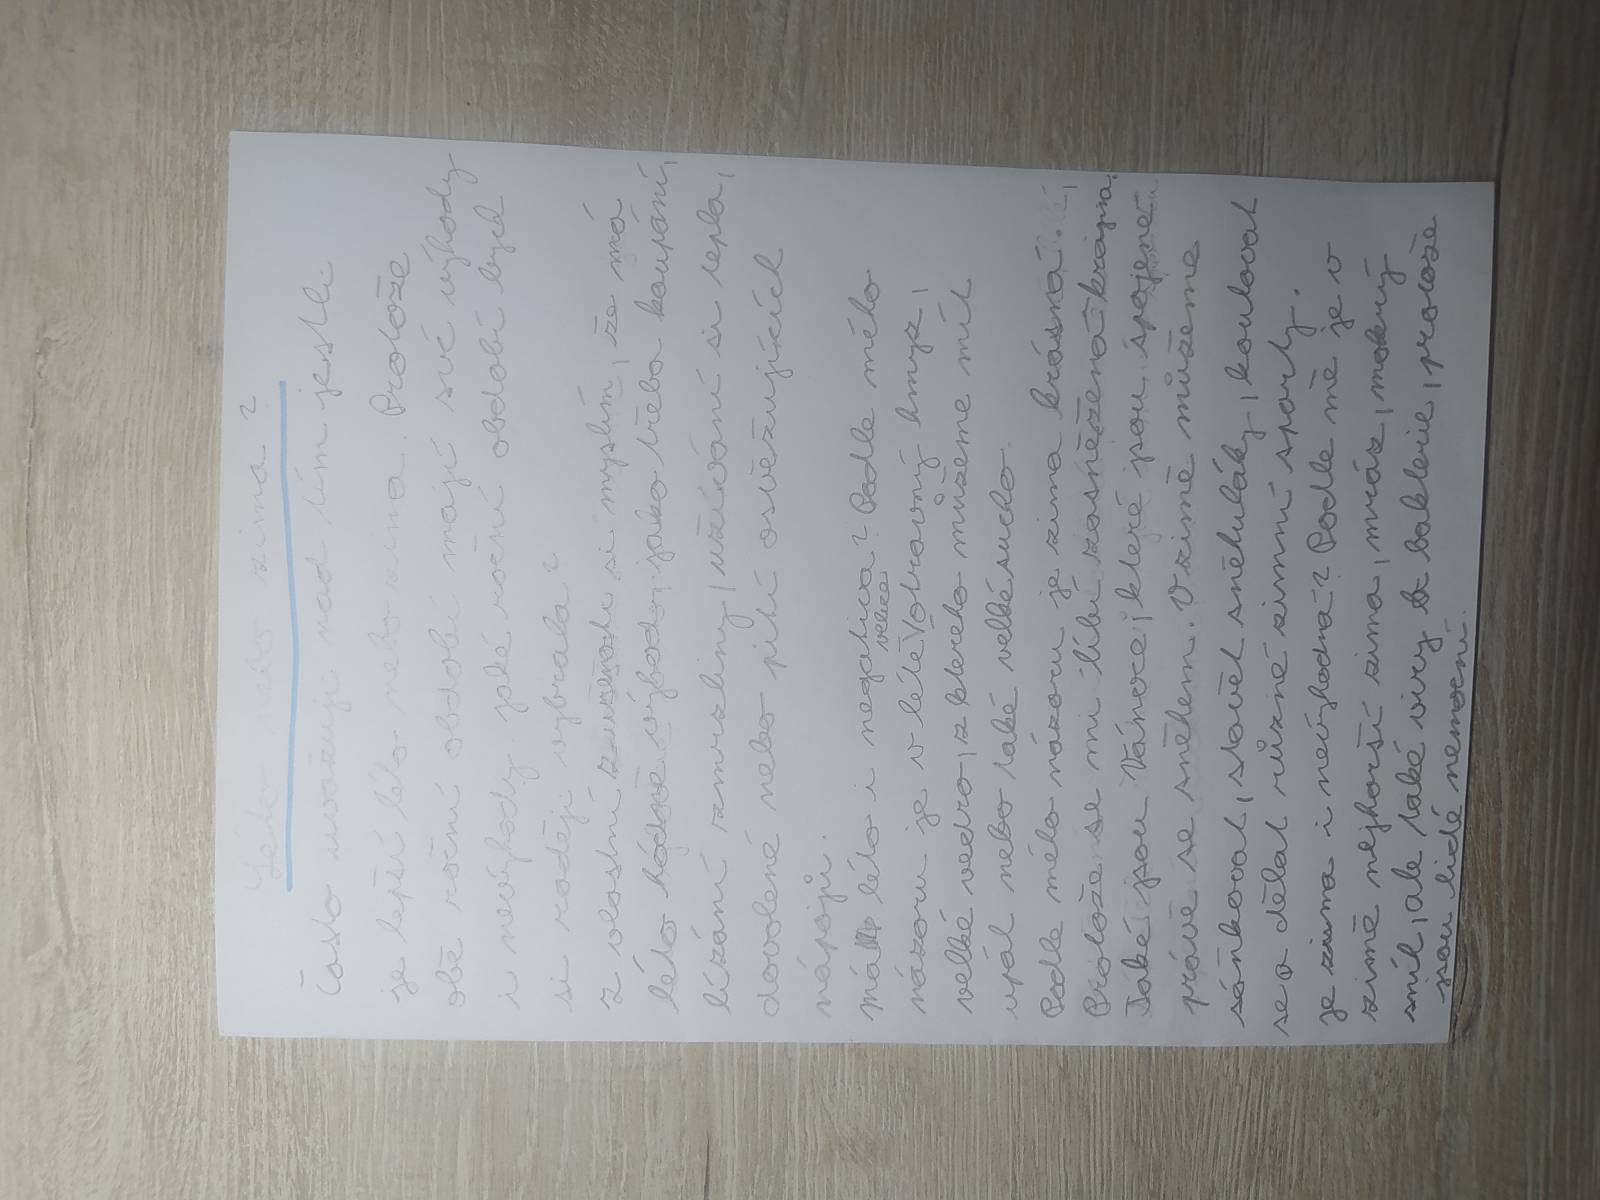 Léto nebo zima?
Často uvažuji nad tím jestli
je lepší léto nebo zima. Protože
obě roční období mají své výhody
i nevýhody jaké roční období bych
si raději vybrala?
z vlastní si myslím, že má
léto hodně výhod, jako třeba koupání,
lízání zmrzliny, užívání si tepla,
dovolené nebo pití osvěžujících
nápojů.
má léto i negativa? Podle mého
názoru je v létě velice otravný hmyz,
velké vedro, z kterého můžeme mít
úpal nebo také velké sucho.
Podle mého názoru je zima krásná
Protože se mi líbí zasněžená krajina.
Také jsou Vánoce, které jsou spojené
právě se sněhem. V zimě můžeme
sáňkovat, stavět sněhuláky, koulovat
se a dělat různé zimní sporty.
je zima i nevýhodná? Podle mě je v
zimě nejhorší zima, mráz, mokrý
sníh, ale také viry a bakterie, protože
jsou lidé nemocní.